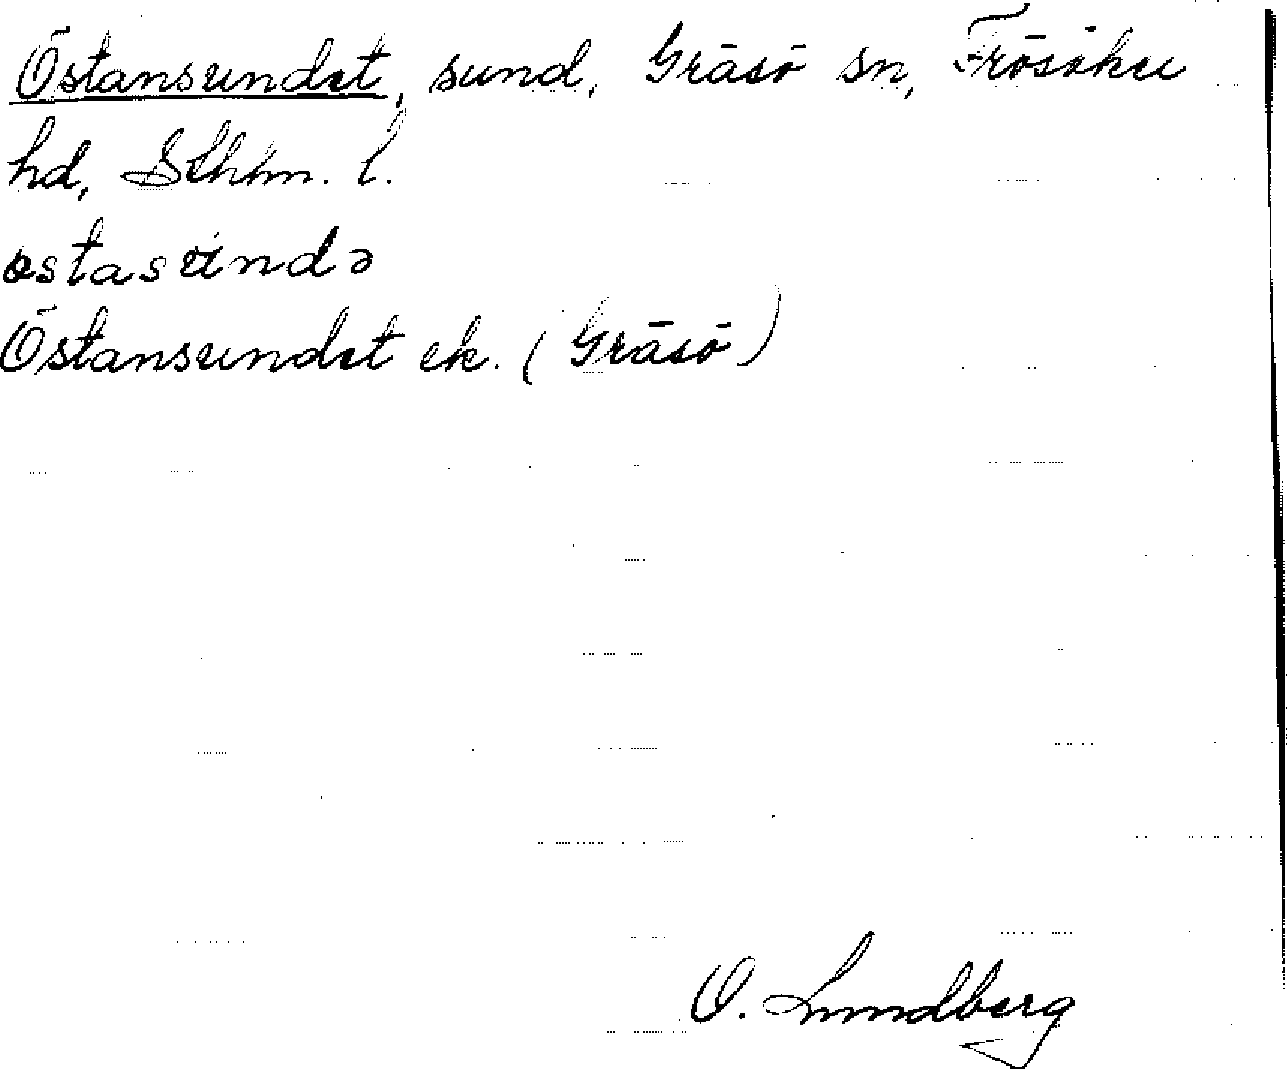 Östansundet, sund, Gräsö sn, Frösåku
hd, Sthlm. l.
ostasundə
Östansundet ek. (Gräsö)
O. Lundberg